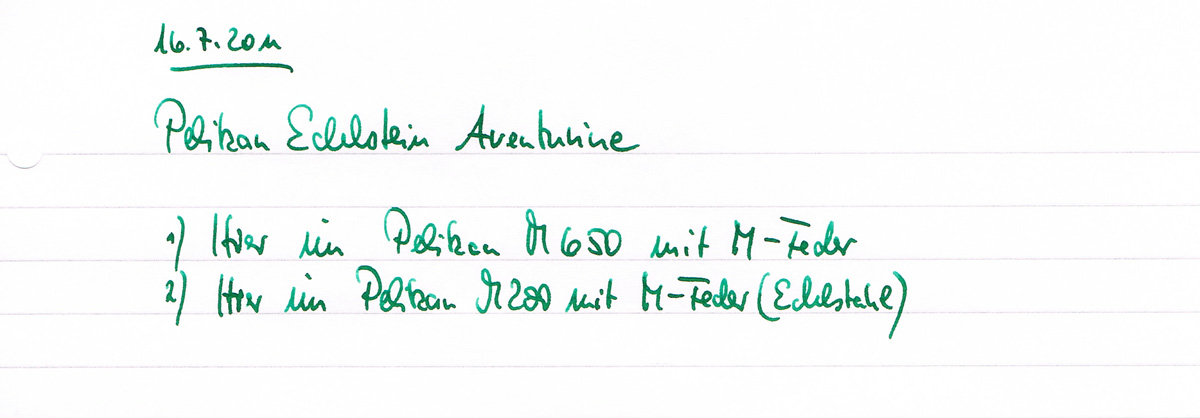 16.7.2011
Pelikan Edelstein Aventurine
1) Hier im Pelikan M650 mit M-Feder
2) Hier im Pelikan M200 mit M-Feder (Edelstahl)